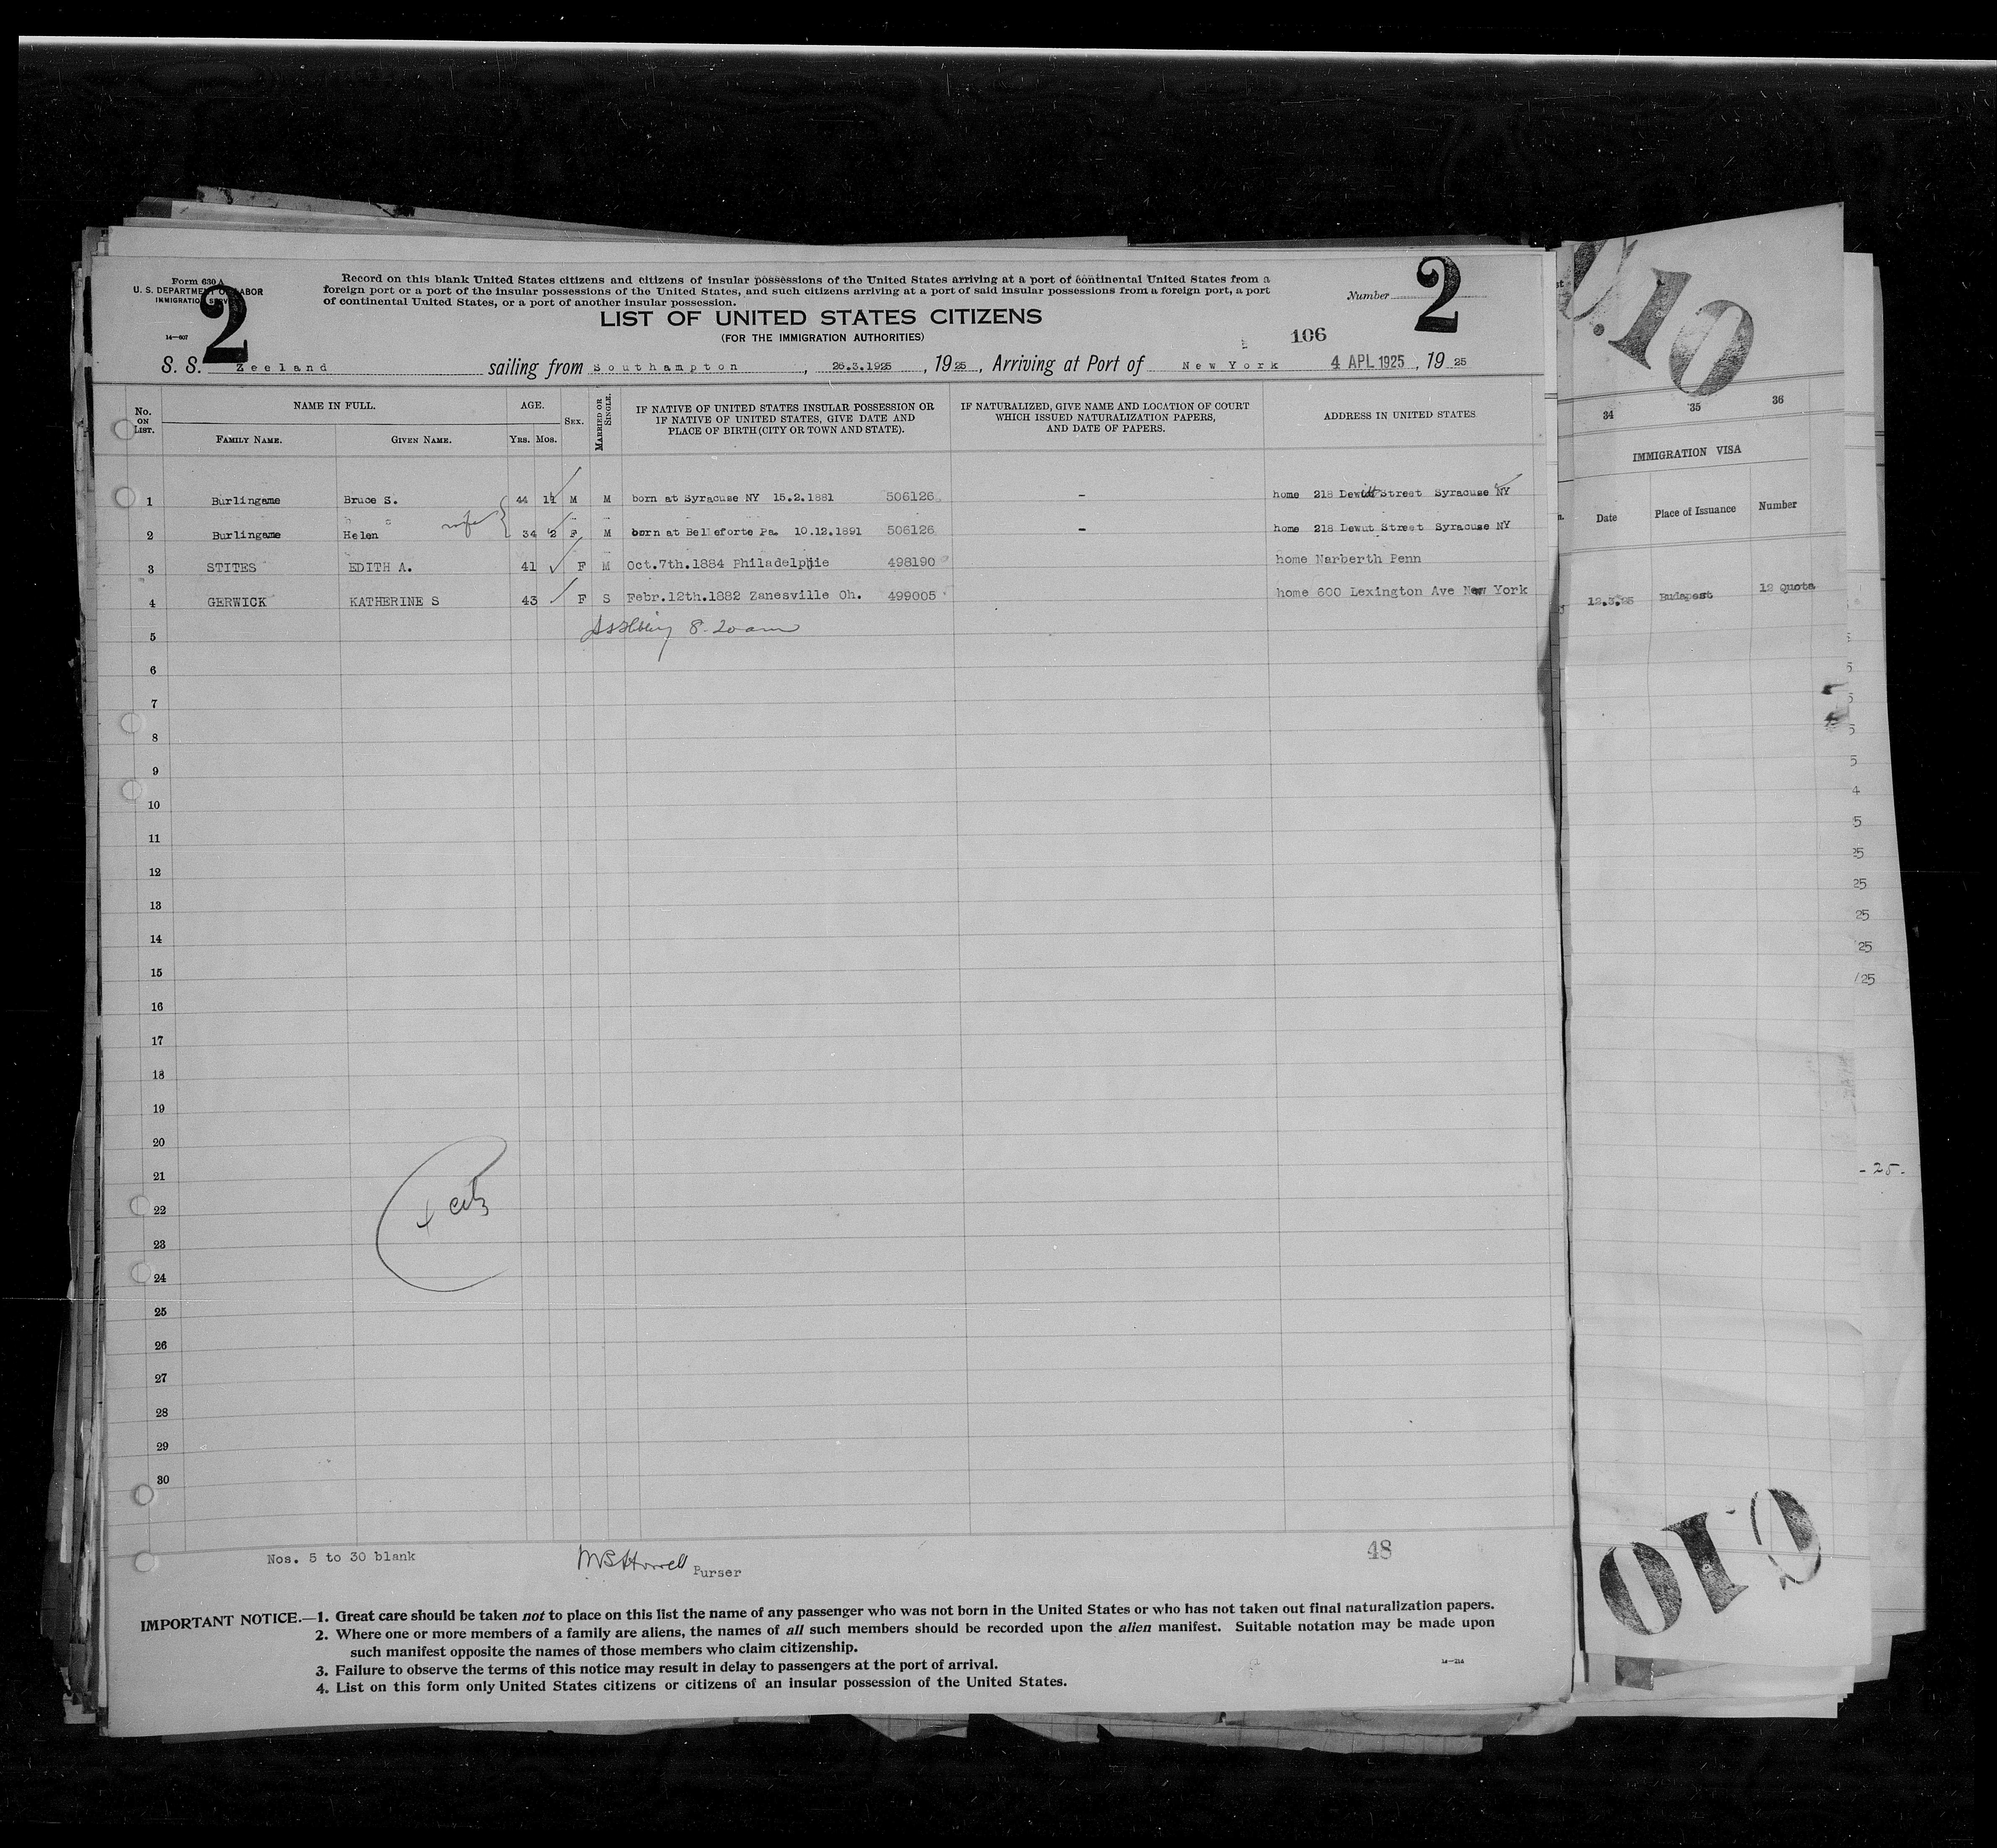 Form 630 A
U. S. DEPARTMENT OF LABOR
IMMIGRATION SERVICE
14—607
2
Record on this blank United States citizens and citizens of insular possessions of the United States arriving at a port of continental United States from a
foreign port or a port of the insular possessions of the United States, and such citizens arriving at a port of said insular possessions from a foreign port, a port
of continental United States, or a port of another insular possession.
Number 2
LIST OF UNITED STATES CITIZENS
(FOR THE IMMIGRATION AUTHORITIES)
106
S. S. Zeeland sailing from Southampton, 26.3.1925, 1925, Arriving at Port of New York 4 APL 1925, 1925
No. ON LIST. NAME IN FULL. AGE. SEX. MARRIED OR SINGLE. IF NATIVE OF UNITED STATES INSULAR POSSESSION OR IF NATIVE OF UNITED STATES, GIVE DATE AND PLACE OF BIRTH (CITY OR TOWN AND STATE). IF NATURALIZED, GIVE NAME AND LOCATION OF COURT WHICH ISSUED NATURALIZATION PAPERS, AND DATE OF PAPERS. ADDRESS IN UNITED STATES
FAMILY NAME. GIVEN NAME. YRS. MOS.
1 Burlingame Bruce S. 44 11 M M born at Syracuse NY 15.2.1881 506126 - home 218 Dewitt Street Syracuse NY
2 Burlingame Helen wife 34 2 F M born at Belleforte Pa. 10.12.1891 506126 - home 218 Dewut Street Syracuse NY
3 STITES EDITH A. 41 F M Oct.7th.1884 Philadelphie 498190 home Narberth Penn
4 GERWICK KATHERINE S 43 F S Febr.12th.1882 Zanesville Oh. 499005 home 600 Lexington Ave New York
5 8.20 am
6
7
8
9
10
11
12
13
14
15
16
17
18
19
20
21
22
23
24
25
26
27
28
29
30
Nos. 5 to 30 blank
Purser
48
IMPORTANT NOTICE.—1. Great care should be taken not to place on this list the name of any passenger who was not born in the United States or who has not taken out final naturalization papers.
2. Where one or more members of a family are aliens, the names of all such members should be recorded upon the alien manifest. Suitable notation may be made upon
such manifest opposite the names of those members who claim citizenship.
3. Failure to observe the terms of this notice may result in delay to passengers at the port of arrival.
4. List on this form only United States citizens or citizens of an insular possession of the United States.
34 35 36
IMMIGRATION VISA
Date Place of Issuance Number
12.3.25 Budapest 12 Quota
5
5
5
5
5
4
5
25
25
25
25
/25
- 25 -